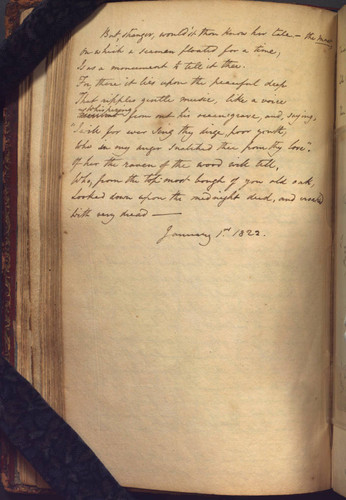 But stranger, would'st thou know her tale — the
on which a seaman floated for a time,
Is as a monument to tell it thee.
For, there it lies upon the peaceful deep
That ripples gentle music, like a voice
whispering
from out his ocean grave, and, sighing,
"I will for ever Song thy dirge poor youth,
Who in my anger snatched thee from thy love".
Of her the raven of the wood will tell,
Who, from the top most bough of yon old oak,
Looked down upon the midnight deed, and
With very dread —
January 1st 1823.